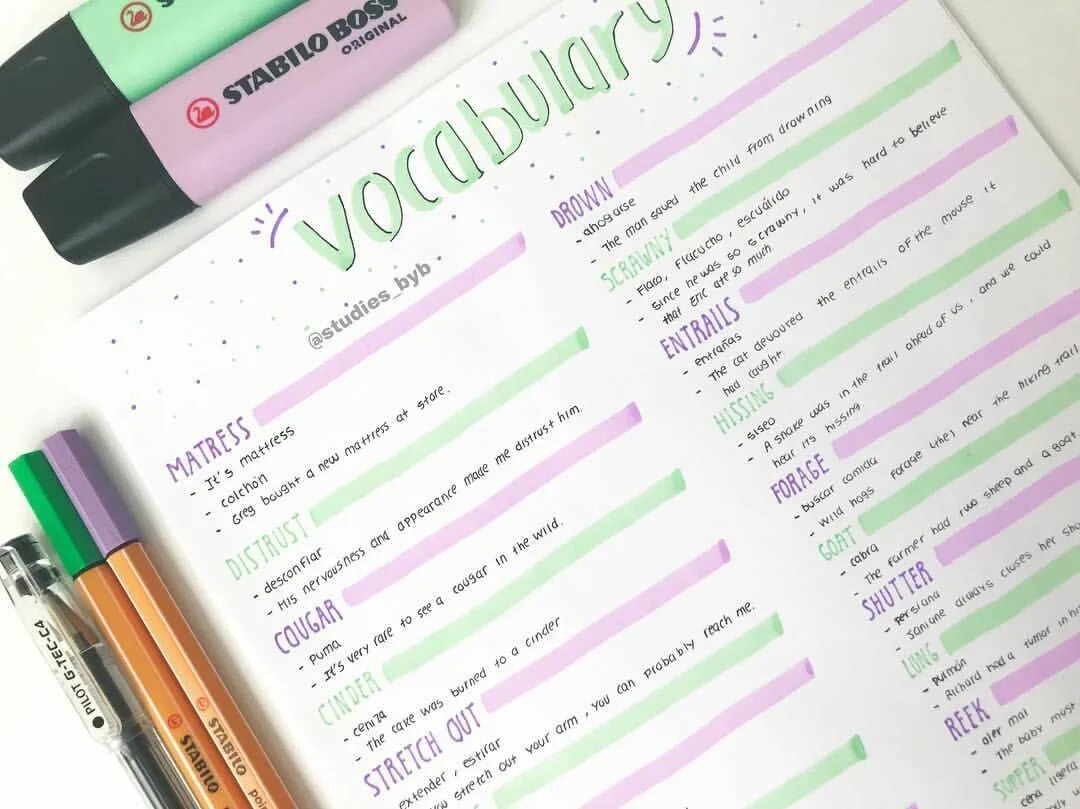 STABILO BOSS
ORIGINAL
Vocabulary
@studies_byb
MATRESS
- It's mattress
- colchón
- Greg bought a new mattress at store.
DISTRUST
- desconfiar
- His nervousness and appearance made me distrust him.
COUGAR
- Puma
- It's very rare to see a cougar in the wild.
CINDER
- ceniza
- The cake was burned to a cinder
STRETCH OUT
extender, estirar
stretch out your arm, you can probably reach me.
DROWN
- ahogarse
- The man saved the child from drowning
SCRAWNY
- Flaco, Flacucho, escuálido
- Since he was so scrawny, it was hard to believe
that Eric ate so much
ENTRAILS
- entrañas
- The cat devoured the entrails of the mouse it
had caught.
HISSING
- siseo
- A snake was in the trail ahead of us, and we could
hear its hissing.
FORAGE
- buscar comida
- Wild hogs forage (the) near the hiking trail
GOAT
- cabra
- The farmer had two sheep and a goat
SHUTTER
- persiana
- Janine always closes her
LUNG
- pulmón
- Richard had a tumor in
REEK
- oler mal
- The baby most
SUPPER
cena ligera
PILOT G-TEC-C4
STABILO
STABILO